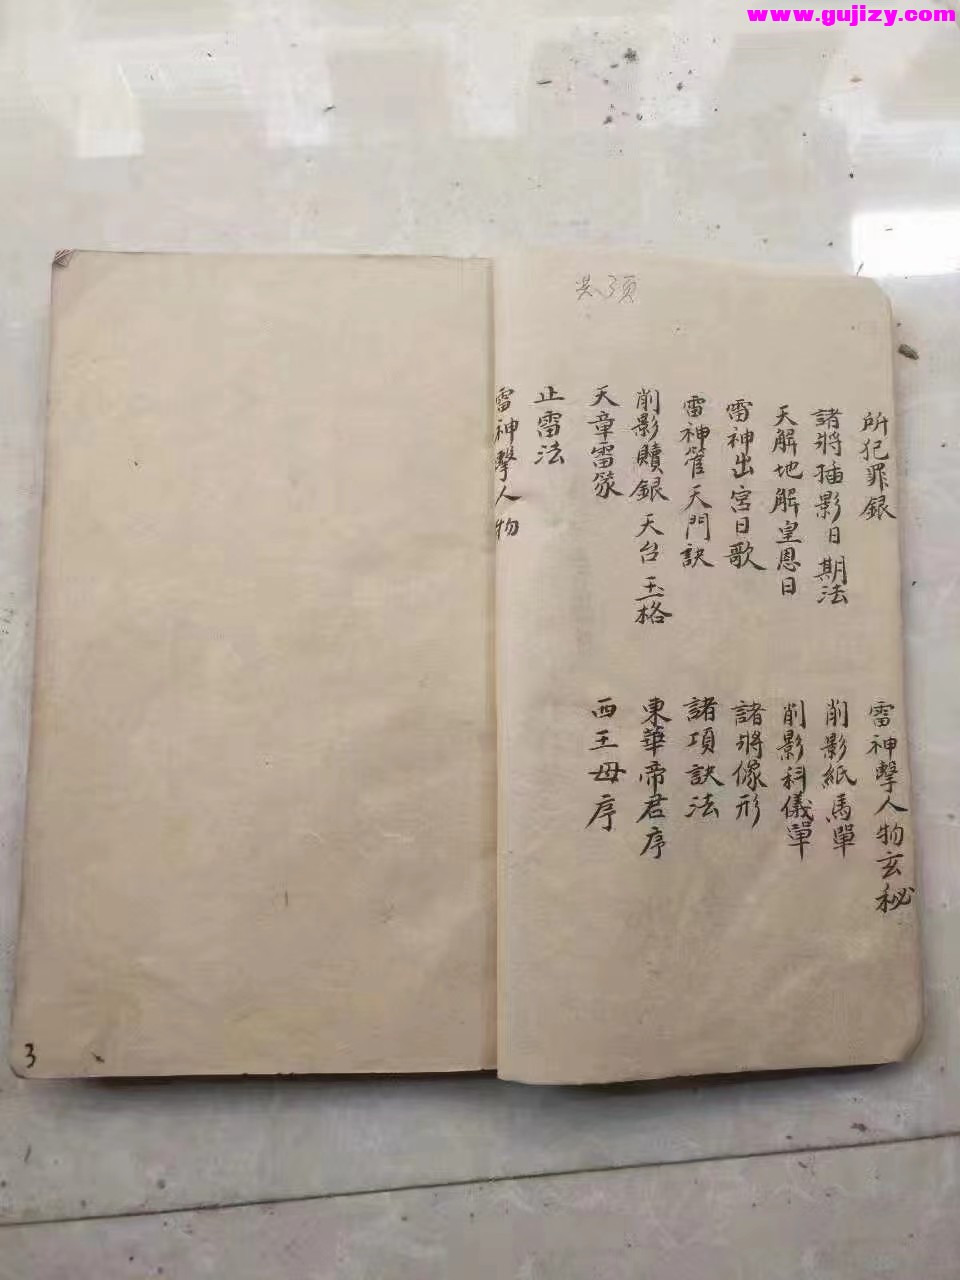 www.gujizy.com
所犯罪銀
諸將插影日期法
天解地解皇恩日
雷神出宮日歌
雷神管天門訣
削影贖銀 天台玉格
天章雷篆
止雷法
雷神擊人物
雷神擊人物玄秘
削影紙馬單
削影科儀單
諸將像形
諸項訣法
東華帝君序
西王母序
3